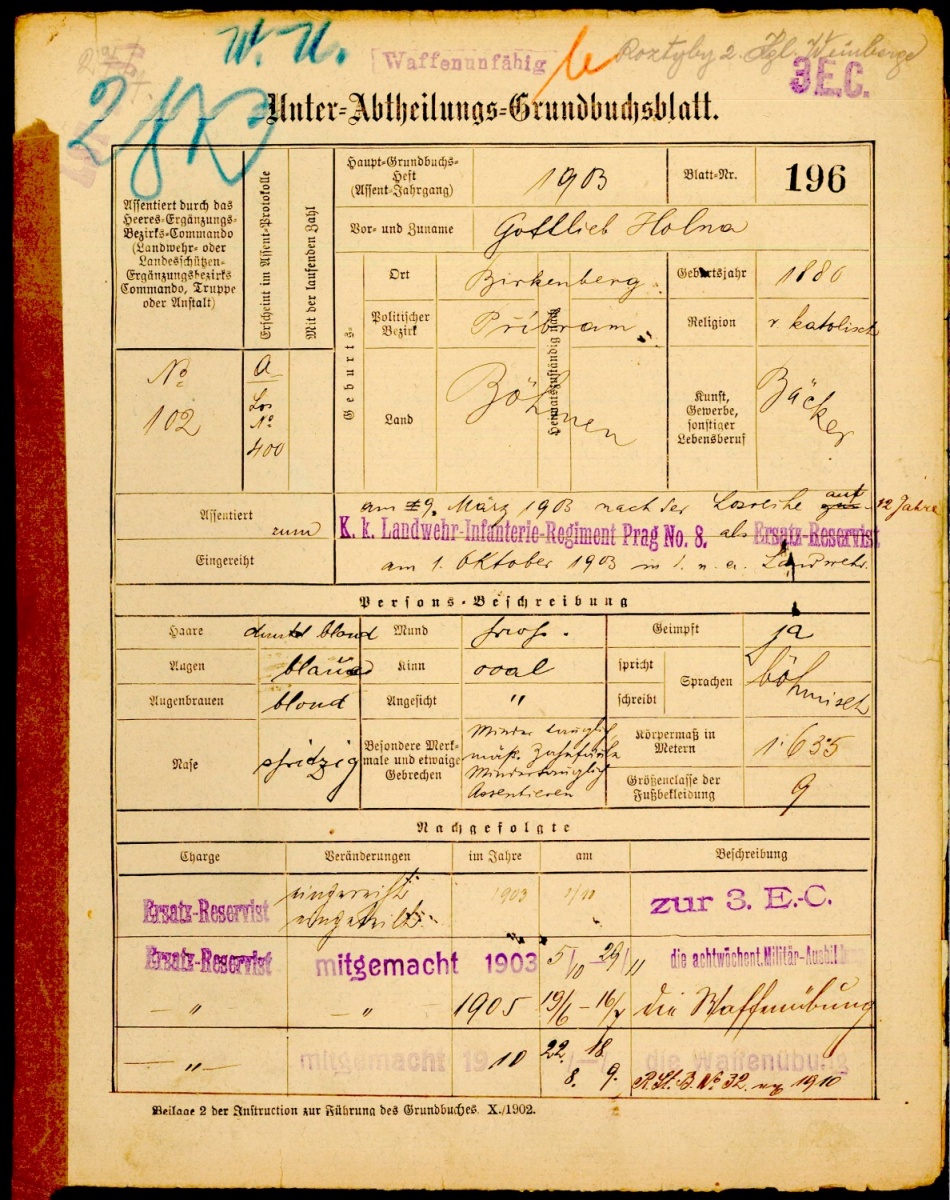 W. U.
Waffenunfähig
Kgl. Weinberge
3 E.C.
Unter-Abtheilungs-Grundbuchsblatt.
Assentiert durch das
Heeres-Ergänzungs-
Bezirks-Commando
(Landwehr- oder
Landesschützen-
Ergänzungsbezirks
Commando, Truppe
oder Anstalt)
Erscheint im Assent-Protokolle
Mit der laufenden Zahl
Haupt-Grundbuchs-
Heft
(Assent-Jahrgang)
1903
Blatt-Nr.
196
Vor- und Zuname
Gottlieb Holna
Geburts-
Ort
Birkenberg
Geburtsjahr
1880
Politischer
Bezirk
Příbram
Heimatszuständig nach
Religion
r. katolisch
No
102
A
Los
No
400
Land
Böhmen
Kunst,
Gewerbe,
sonstiger
Lebensberuf
Bäcker
Assentiert
am 9. März 1903 nach der Losreihe auf 12 Jahre
zum K. k. Landwehr-Infanterie-Regiment Prag No. 8. als Ersatz-Reservist
Eingereiht
am 1. Oktober 1903 in d. n. a. Landwehr.
Persons-Beschreibung
Haare
dunkel blond
Mund
prop.
Geimpft
ja
Augen
blau
Kinn
oval
spricht
schreibt
Sprachen
böhmisch
Augenbrauen
blond
Angesicht
"
Nase
spitzig
Besondere Merk-
male und etwaige
Gebrechen
Minder tauglich
mäß. Zahnfäule
Mindertauglich
Assentieren
Körpermaß in
Metern
1·635
Größenclasse der
Fußbekleidung
9
Nachgefolgte
Charge
Veränderungen
im Jahre
am
Beschreibung
Ersatz-Reservist
eingereiht
eingereiht
1903
1/10
zur 3. E.-C.
Ersatz-Reservist mitgemacht 1903 5/10 - 29/11 die achtwöchent. Militär-Ausbildung
— " — — " — 1905 19/6 - 16/7 die Waffenübung
— " — mitgemacht 1910 22./8. - 18./9. die Waffenübung
R. St. B. No 32. ex 1910
Beilage 2 der Instruction zur Führung des Grundbuches X./1902.